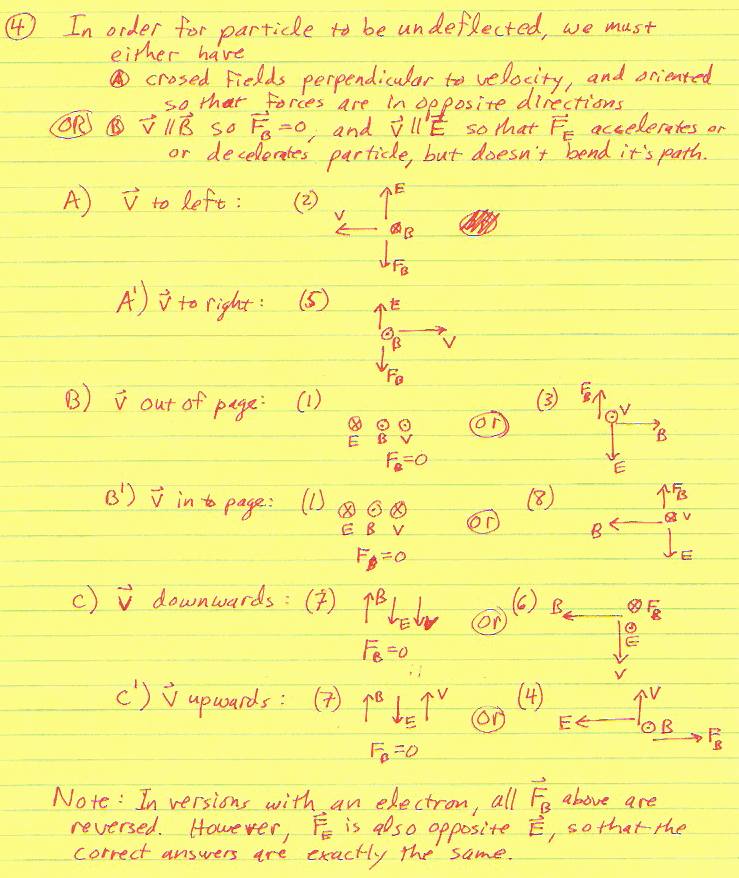 ④ In order for particle to be undeflected, we must
either have
Ⓐ crosed fields perpendicular to velocity, and oriented
so that forces are in opposite directions
OR Ⓑ V⃗ ∥ B⃗ so F⃗_B = 0, and V⃗ ∥ E⃗ so that F⃗_E accelerates or
or decelerates particle, but doesn't bend it's path.
A) V⃗ to left : (2) E
V ⊗ B
F_B
A') V⃗ to right : (5) E
⊙ B V
F_B
B) V⃗ out of page: (1) ⊗ ⊙ ⊙ or (3) F_B ⊙ V B
E B V E
F_B = 0
B') V⃗ in to page: (1) ⊗ ⊙ ⊗ or (8) F_B
E B V B ⊗ V
F_B = 0 E
C) V⃗ downwards : (7) B E V or (6) B ⊗ F_B
F_B = 0 ⊙ E
V
C') V⃗ upwards : (7) B E V or (4) V
E ⊙ B F_B
F_B = 0
Note : In versions with an electron, all F⃗_B above are
reversed. However, F⃗_E is also opposite E⃗, so that the
correct answers are exactly the same.